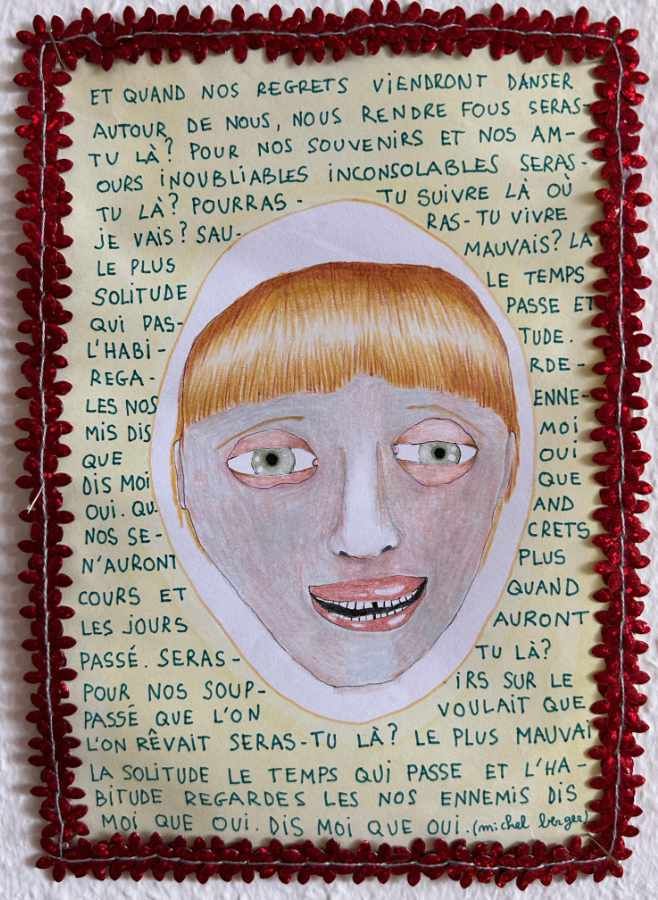 ET QUAND NOS REGRETS ViENDRONT DANSER
AUTOUR DE NOUS, NOUS RENDRE FOUS SERAS-
TU LÀ? POUR NOS SOUVENIRS ET NOS AM-
OURS INOUBLIABLES INCONSOLABLES SERAS-
TU LÀ? POURRAS - TU SUIVRE LÀ OÙ
JE VAIS? SAU- RAS-TU VIVRE
LE PLUS MAUVAIS? LA
SOLITUDE LE TEMPS
QUI PAS- PASSE ET
L'HABI- TUDE.
REGA- RDE-
LES NOS ENNE-
MIS DIS MOI
QUE OUI
DIS MOI QUE
OUI. QU AND
NOS SE- CRETS
N'AURONT PLUS
COURS ET QUAND
LES JOURS AURONT
PASSÉ. SERAS- TU LÀ?
POUR NOS SOUP- IRS SUR LE
PASSÉ QUE L'ON VOULAIT QUE
L'ON RÊVAIT SERAS-TU LÀ? LE PLUS MAUVAI
LA SOLITUDE LE TEMPS QUI PASSE ET L'HA-
BITUDE REGARDES LES NOS ENNEMIS DIS
MOI QUE OUI. DIS MOI QUE OUI. (michel berger)